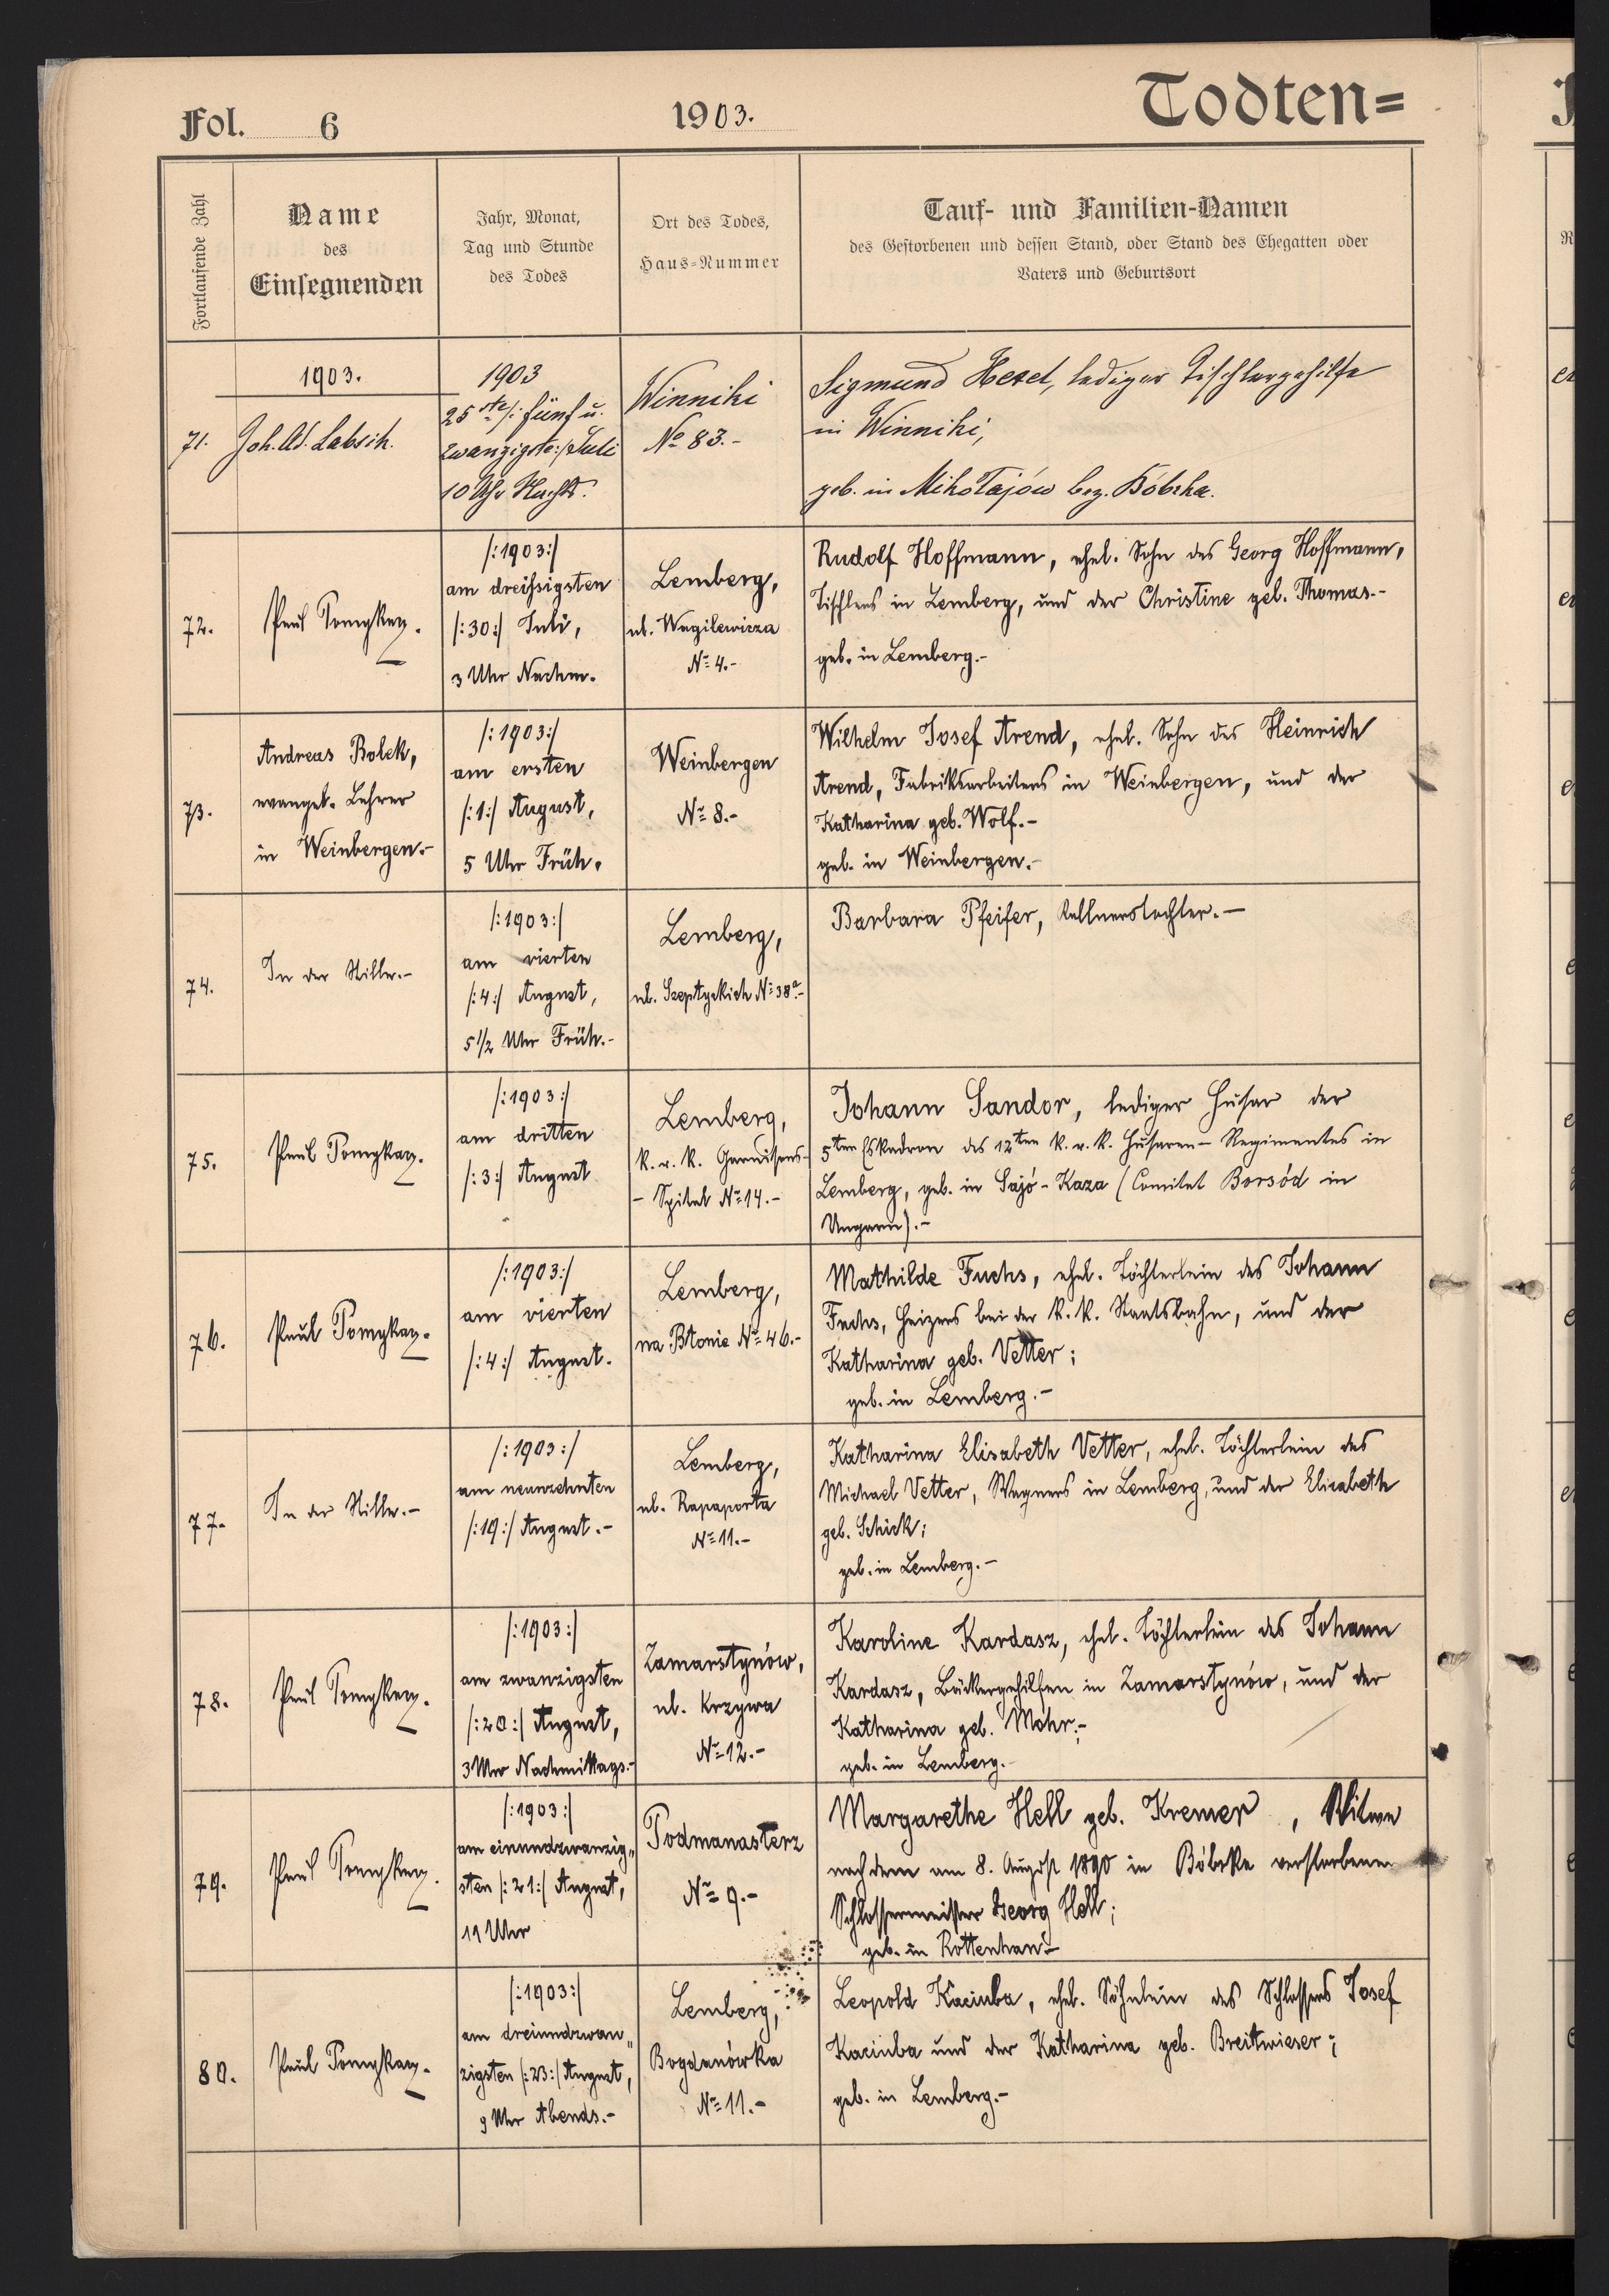 Fol. 6
1903.
Todten=
Fortlaufende Zahl
Name
des
Einsegnenden
Jahr, Monat,
Tag und Stunde
des Todes
Ort des Todes,
Haus-Nummer
Tauf- und Familien-Namen
des Gestorbenen und dessen Stand, oder Stand des Ehegatten oder
Vaters und Geburtsort
71.
1903.
Joh. Ad. Labsik.
1903
25ste /: fünf u.
zwanzigste:/ Juli
10 Uhr Nachts.
Winniki
No 83.-
Sigmund Hesel, lediger Tischlergehilfe
in Winniki,
geb. in Mikołajów bez. Bóbrka.
72.
Paul Pomykacz.
/:1903:/
am dreißigsten
/:30:/ Juli,
3 Uhr Nachm.
Lemberg,
ul. Wagilewicza
No 4.-
Rudolf Hoffmann, ehel. Sohn des Georg Hoffmann,
Tischlers in Lemberg, und der Christine geb. Thomas.-
geb. in Lemberg.-
73.
Andreas Bolek,
evangel. Lehrer
in Weinbergen.-
/:1903:/
am ersten
/:1:/ August,
5 Uhr Früh.
Weinbergen
No 8.-
Wilhelm Josef Arend, ehel. Sohn des Heinrich
Arend, Fabriksarbeiters in Weinbergen, und der
Katharina geb. Wolf.-
geb. in Weinbergen.-
74.
In der Stille.-
/:1903:/
am vierten
/:4:/ August,
5 1/2 Uhr Früh.-
Lemberg,
ul. Szeptyckich No 38a.-
Barbara Pfeifer, Kellnerstochter.-
75.
Paul Pomykacz.
/:1903:/
am dritten
/:3:/ August
Lemberg,
k. u. k. Garnisons-
- Spital No 14.-
Johann Sandor, lediger Husar der
5ten Eskadron des 12ten k. u. k. Husaren- Regimentes in
Lemberg, geb. in Sajó-Kaza (Comitat Borsód in
Ungarn).-
76.
Paul Pomykacz.
/:1903:/
am vierten
/:4:/ August.
Lemberg,
na Błonie No 46.-
Mathilde Fuchs, ehel. Töchterlein des Johann
Fuchs, Heizers bei der k. k. Staatsbahn, und der
Katharina geb. Vetter;
geb. in Lemberg.-
77.
In der Stille.-
/:1903:/
am neunzehnten
/:19:/ August.-
Lemberg,
ul. Rapaporta
No 11.-
Katharina Elisabeth Vetter, ehel. Töchterlein des
Michael Vetter, Wagners in Lemberg, und der Elisabeth
geb. Schick;
geb. in Lemberg.-
78.
Paul Pomykacz.
/:1903:/
am zwanzigsten
/:20:/ August,
3 Uhr Nachmittags.-
Zamarstynów,
ul. Krzywa
No 12.-
Karoline Kardasz, ehel. Töchterlein des Johann
Kardasz, Bäckergehilfen in Zamarstynów, und der
Katharina geb. Mohr.-
geb. in Lemberg.-
79.
Paul Pomykacz.
/:1903:/
am einundzwanzig„
sten /:21:/ August,
11 Uhr
Podmanasterz
No 9.-
Margarethe Hell geb. Kremer, Witwe
nach dem am 8. August 1890 in Bóbrka verstorbenen
Schlossermeister Georg Hell;
geb. in Rottenhan.-
80.
Paul Pomykacz.
/:1903:/
am dreiundzwan„
zigsten /:23:/ August,
9 Uhr Abends.-
Lemberg,
Bogdanówka
No 11.-
Leopold Kaciuba, ehel. Söhnlein des Schlossers Josef
Kaciuba und der Katharina geb. Breitwieser;
geb. in Lemberg.-